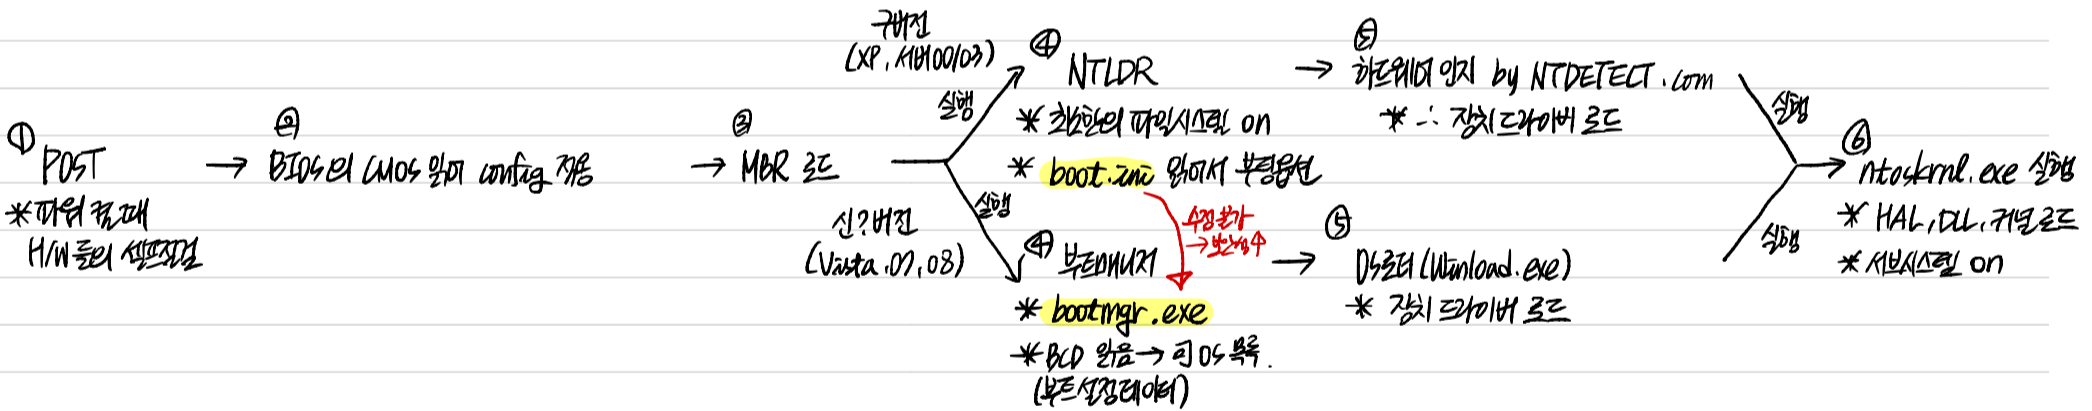 ①
POST
*파워 켤때
H/W들의 셀프점검
→
②
BIOS의 CMOS 읽어 config 적용
→
③
MBR 로드
구버전
(XP, 서버00/03)
실행
④
NTLDR
* 최소한의 파일시스템 on
* boot.ini 읽어서 부팅옵션
→
⑤
하드웨어 인지 by NTDETECT.com
* ∴ 장치드라이버 로드
실행
신?버전
(Vista, 07, 08)
실행
수정불가
→보안성↑
④ 부트매니저
* bootmgr.exe
*BCD 읽음→ 可OS 목록.
(부트설정데이터)
→
⑤
OS로더(Winload.exe)
* 장치 드라이버 로드
실행
→
⑥
ntoskrnl.exe 실행
* HAL, DLL, 커널로드
* 서브시스템 on